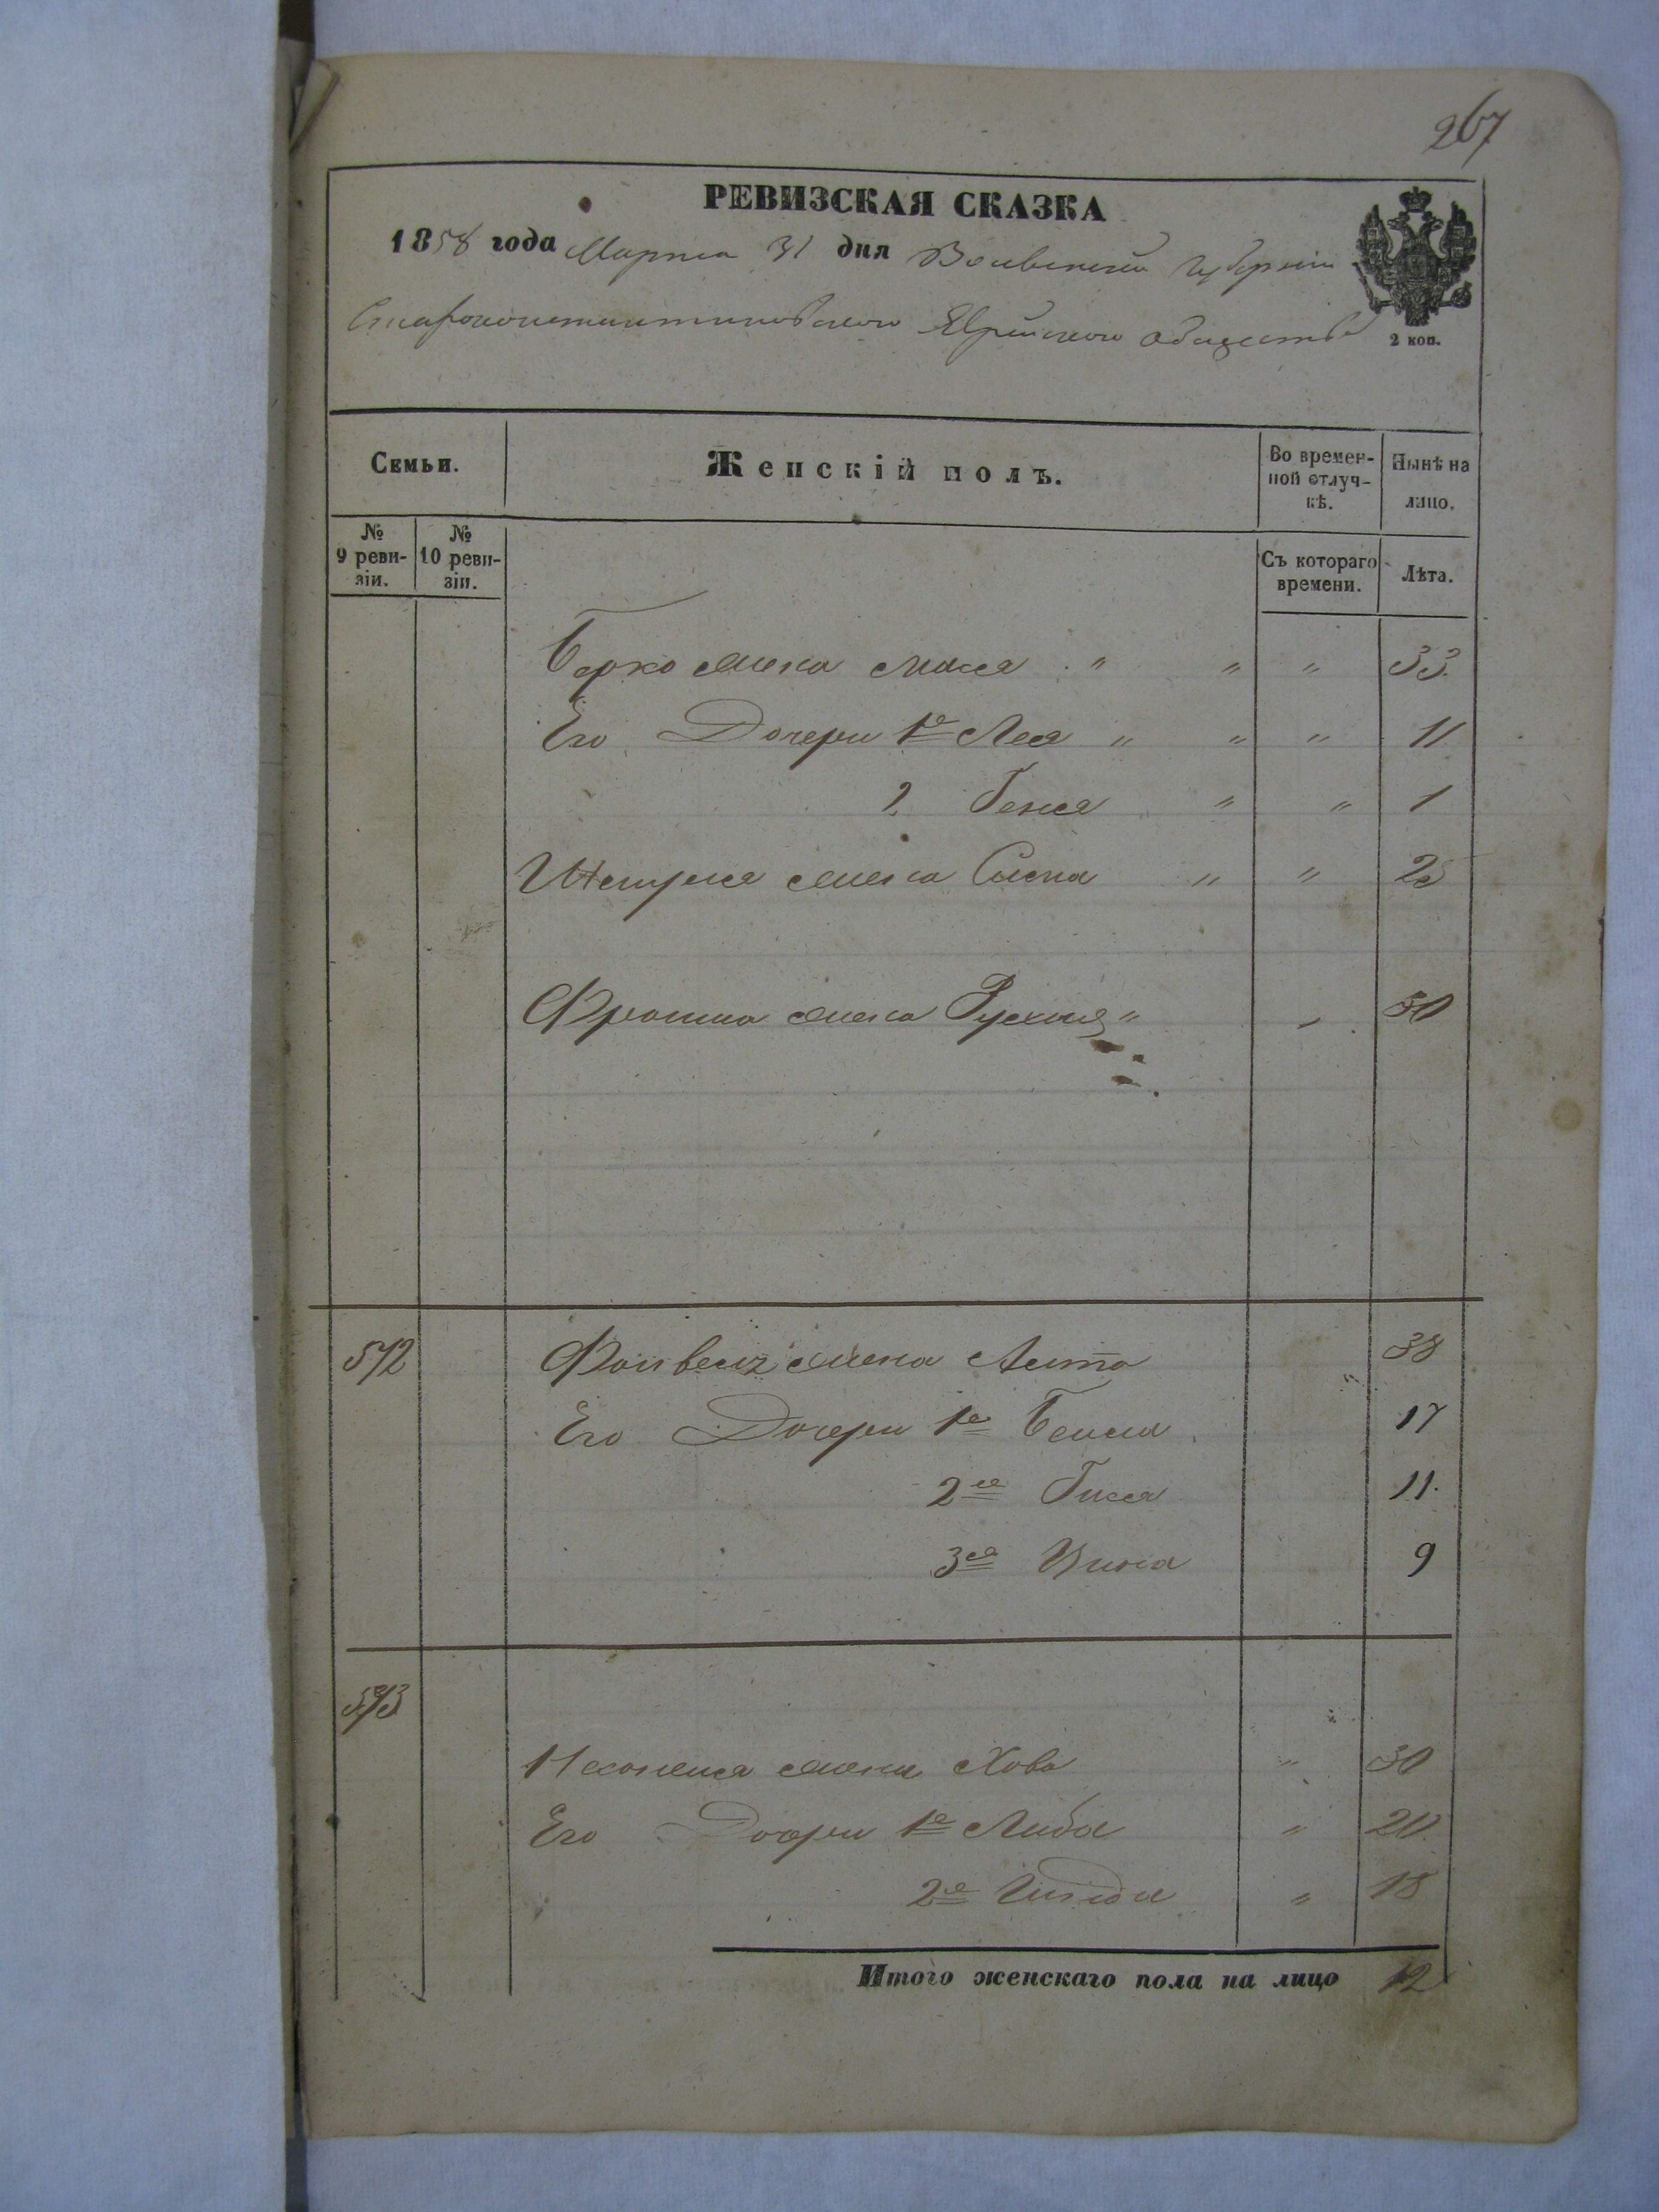 267
РЕВИЗСКАЯ СКАЗКА
1858 года Марта 31 дня Волынской Губернiи
Староконстантиновского Еврейского общества
2 коп.
Семьи.
Женскiй полъ.
Во времен-
ной отлуч-
кѣ.
Нынѣ на
лицо.
№
9 реви-
зiи.
№
10 реви-
зiи.
Съ котораго
времени.
Лѣта.
Берко жена Мася " " " 33
Его Дочери 1я Лея " " " 11
2 Генся " " 1
жена " " 25
жена Рухля " 30
572 жена 38
Его Дочери 1я 17
2я Гися 11
3я Цина 9
573
жена Хова " 30
Его Дочери 1я Либа " 20
2я " 18
Итого женскаго пола на лицо 12